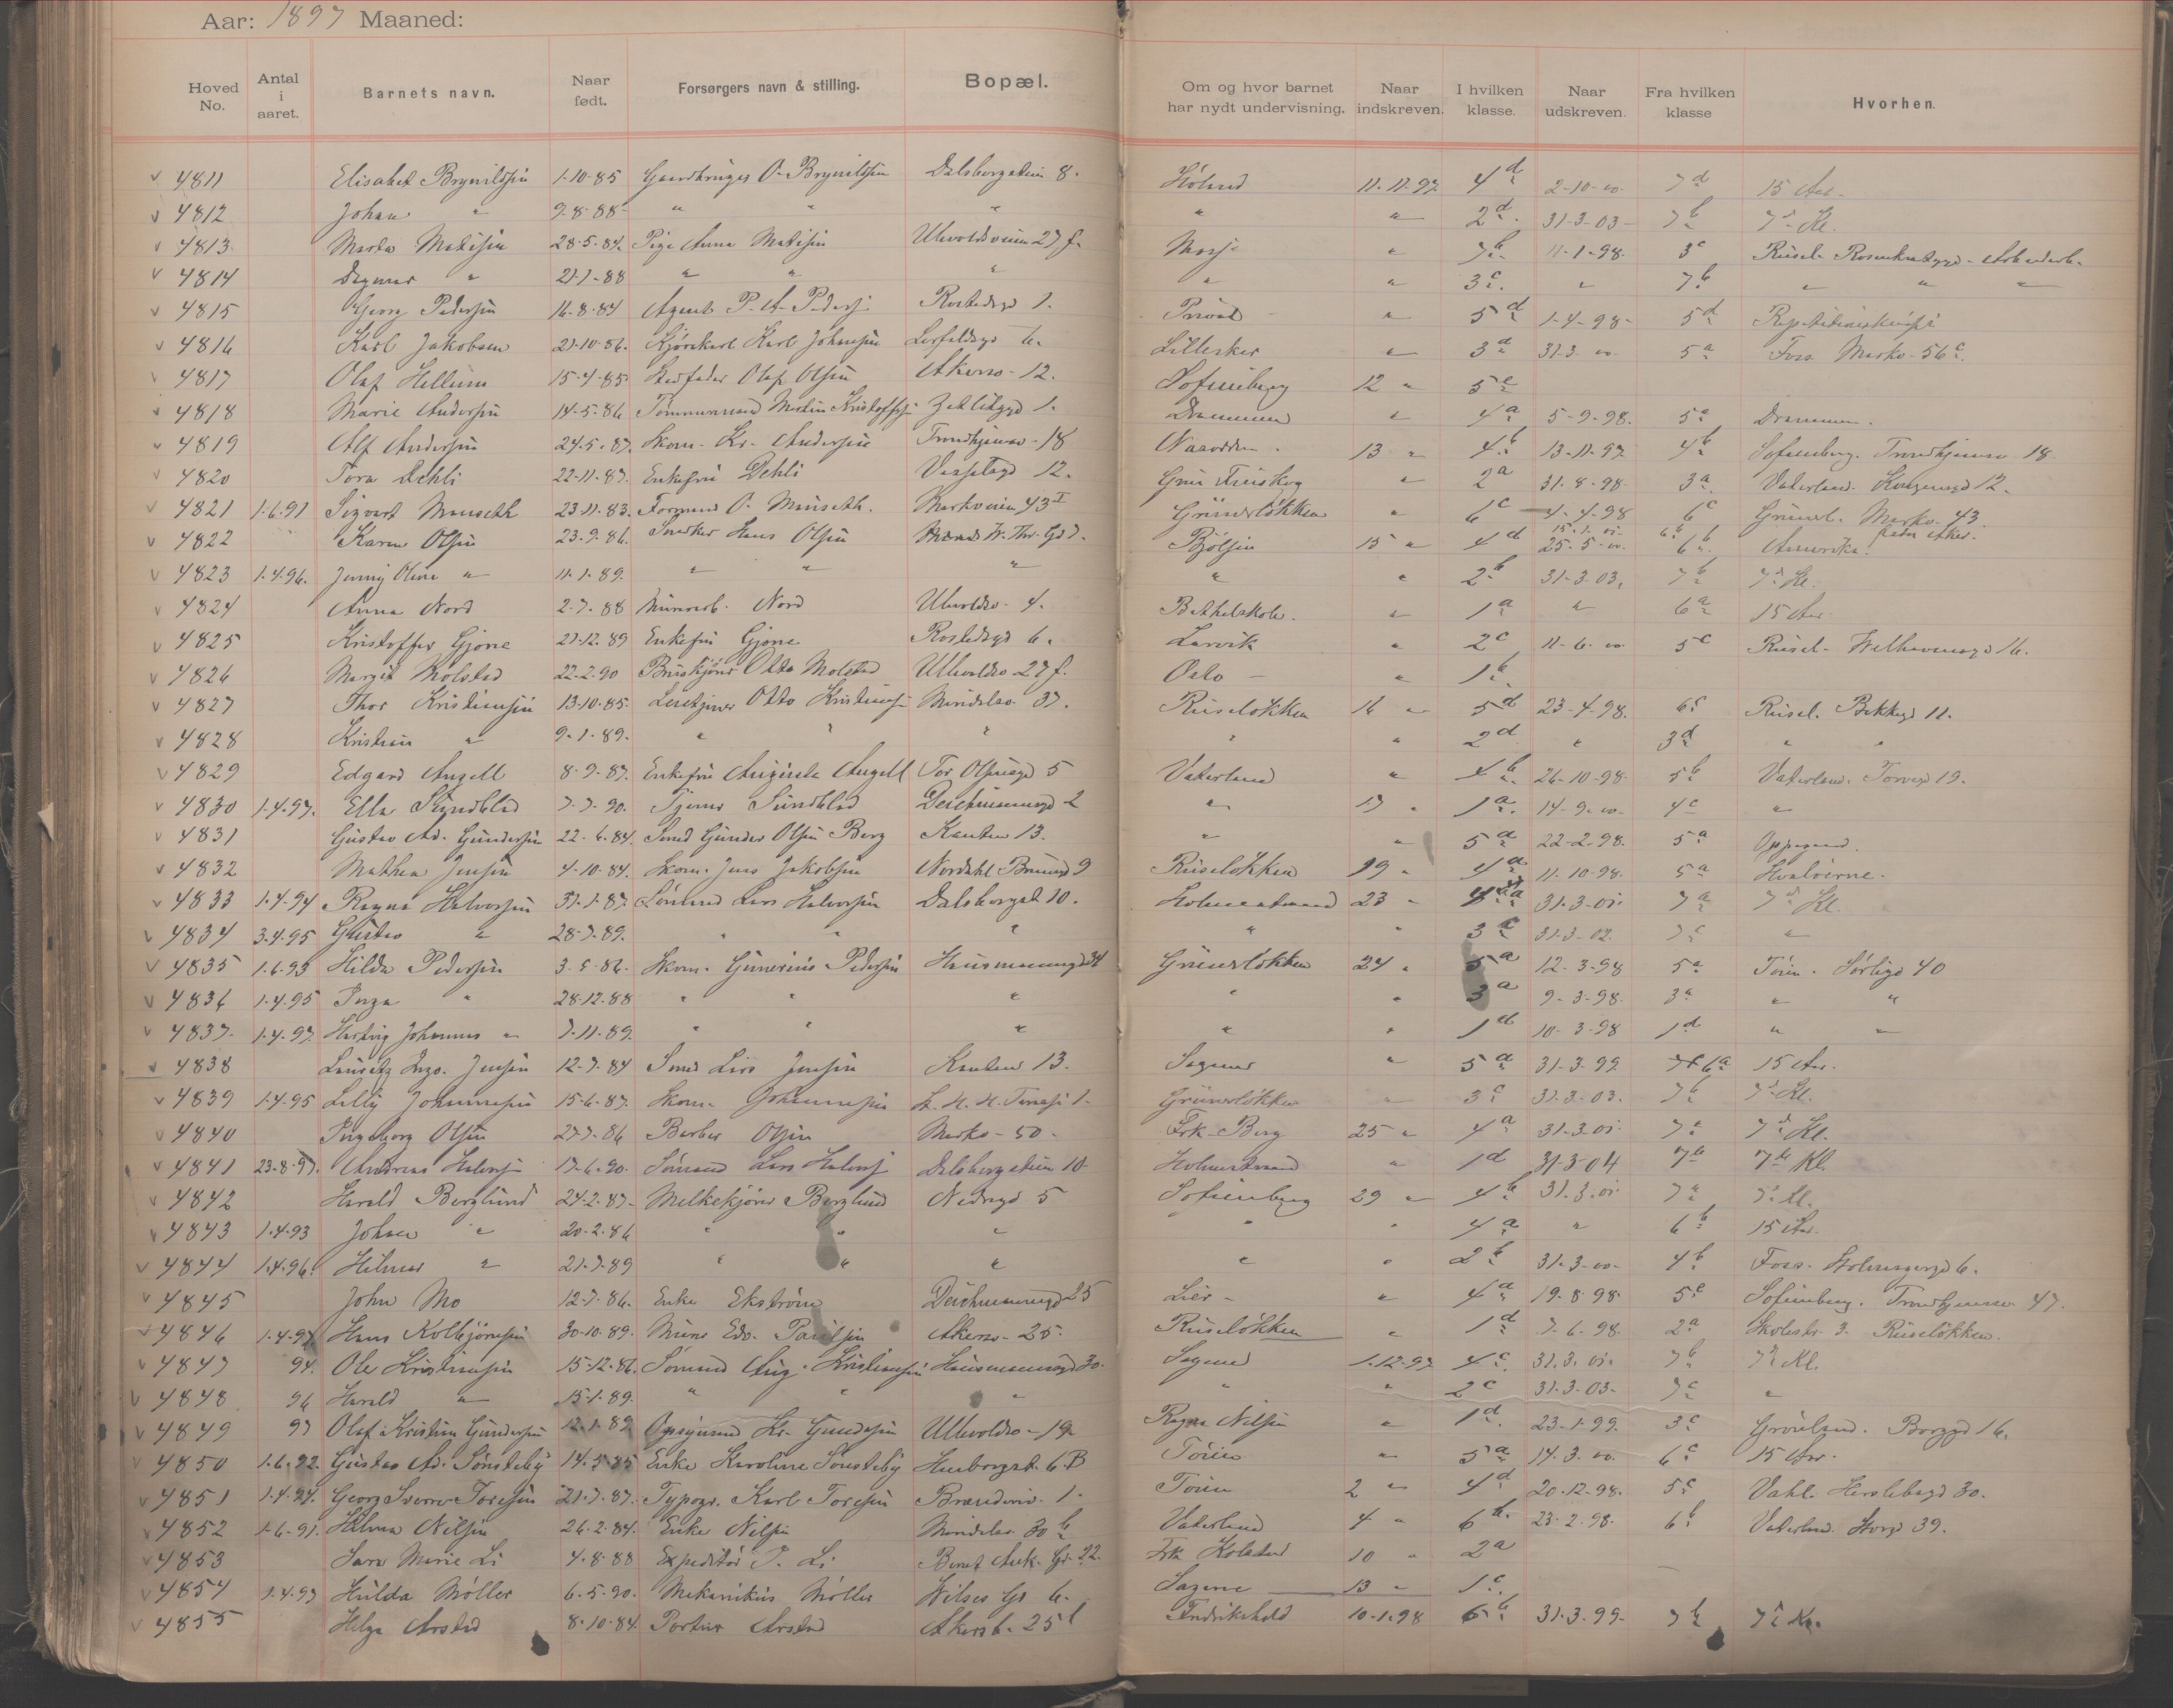 Aar: 1897 Maaned:
Hoved No. Antal i aaret. Barnets navn. Naar født. Forsørgers navn & stilling. Bopæl. Om og hvor barnet har nydt undervisning. Naar indskreven. I hvilken klasse. Naar udskreven. Fra hvilken klasse Hvorhen.
4811 Elisabet Brynildsen 1-10-85 O. Brynildsen Dalsbergstien 8. Höland 11-11-97. 4d 2-10-00. 7d 15 Aar.
4812 Johan " 9-8-88 " " " " " 2d. 31-3-03- 7b 7de Kl.
4813 Marta Matisen 28-5-84. Pige Anna Matisen Ullevoldsveien 27 f. " 7b. 11-1-98. 3c Rusel.
4814 Dagmar " 21-1-88 " " " " " 3c. " 7b " " "
4815 Georg Pedersen 16-8-84 Agent P. A. Pedersen Rostedsgd 1. Privat " 5d 1-4-98- 5d
4816 Karl Jakobsen 21-10-86. Kjørekarl Karl Johansen 6. Lilleaker " 3d 31-3-00. 5a Foss. Markv. 56c.
4817 Olaf Hellum 15-4-85 Stedfader Olaf Olsen Akersv. 12. Sofienberg 12 " 5c
4818 Marie Andersen 14-5-86 Tømmermand Martin Kristoffersen 1. Drammen " 4a 5-9-98. 5a Drammen.
4819 Alf Andersen 24-5-87. Skom. Kr. Andersen Trondhjemsv. 18 Næsodden. 13 " 4b 13-11-97 4b Sofienberg. Trondhjemsv. 18.
4820 Tora Dehli 22-11-87. Enkefru Dehli 12. " 2a 31-8-98. 3a. Vaterland. Kongensgd 12.
4821 1.6.91 Sigvart Munseth 23-11-83. Formand O. Munseth. Markveien 43 I Grünerløkken " 6c 4-4-98 6c Grünerl. Markv. 43.
4822 Karen Olsen 23-9-86. Snedker Hans Olsen Bjølsen 15 " 4d 25-5-00. 6b. Amerika.
4823 1.4.96. Jenny Oline " 11-1-89. " " " " " 2b 31-3-03. 7b 7de Kl.
4824 Anna Nord 2-7-88 Murerarb. Nord Ullevoldsv. 4. Betelskole. " 1a " 6a 15 Aar
4825 Kristoffer Gjone 21-12-89 Enkefru Gjone Rostedsgd 6. Larvik " 2c 11-6-00 5c Rusel. Welhavensgd 16.
4826 Margit Molstad 22-2-90 Otto Molstad Ullevoldsv 27 f. Oslo " 1b.
4827 Thor Kristiansen 13-10-85. Otto Kristiansen Mindslev. 37. Ruseløkken 16 " 5d 23-4-98. 6c Rusel. Bakkegd 11.
4828 Kristian " 9-1-89. " " " " " 2d " 3d " "
4829 Edgard Angell 8-9-87. Enkefru Augusta Angell Tor Olsensgd 5 Vaterland " 4b. 26-10-98- 5b Vaterland. Torvgd 19.
4830 1.4.97. Ella Sundblad 7-7-90. Tjener Sundblad Deichmansgd 2 " 17 " 1a. 14-9-00- 4c "
4831 Gustav Ad. Gundersen 22-6-84. Smed Gunder Olsen Berg Kanten 13. " " 5a 22-2-98. 5a Oppegaard.
4832 Mathea Jensen 4-10-84. Skom. Jens Jakobsen Nordahl Brunsgd 9 Ruseløkken 19 " 4d 11-10-98. 5a Hvaløerne.
4833 1.4.94 Ragna Halvorsen 31-1-87. Sømand Lars Halvorsen Dalsbergst 10. Holmestrand 23 " 31-3-01- 7a 7de Kl.
4834 3.4.95 Gustav " 28-7-89. " " " " " 3c 31-3-02. 7c "
4835 1.6.93 Hilda Pedersen 3-5-86. Skom. Gunerius Pedersen Hausmannsgd 34 Grünerløkken 24 " 5a 12-3-98 5a Tøien. Sørligd 40
4836 1.4.95 Inga " 28-12-88 " " " " " 3a 9-3-98. 3a " "
4837. 1.4.97. Hartvig Johannes " 7-11-89. " " " " " 1d 10-3-98 1d " "
4838 Lauritz Ingv. Jensen 12-7-84 Smed Lars Jensen Kanten 13. Sagene " 5a 31-3-99. 6a 15 Aar.
4839 1.4.95 Lilly Johannesen 15-6-87. Skom. Johannesen 1. Grünerløkken " 3c 31-3-03. 7b 7de Kl.
4840 Ingeborg Olsen 27-7-86 Barber Olsen Markv. 50. Frk. Berg 25 " 4a 31-3-01 7a 7de Kl.
4841 23-8-97. Andreas Halvorsen 17-6-90. Sømand Lars Halvors. Dalsbergstien 10 Holmestrand " 1d 31-3-04 7b 7de Kl.
4842 Harald Berglund 24-2-87. Melkekjører Berglund Nedregd 5 Sofienberg 29 " 4b 31-3-01 7a 7de Kl.
4843 1.4.93 Johan " 20-2-86 " " " " " 4a " 6b 15 Aar.
4844 1.4.96. Hilmar " 21-7-89 " " " " " 2b 31-3-00. 4b Foss. 6.
4845 John Mo 12-7-86. Enke Ekstrøm Deichmansgd 25 Lier " 4a 19-8-98 5c Sofienberg. Trondhjemsv. 47.
4846 1.4.97 Hans Kolbjørnsen 30-10-89. Murer Edv. Paulsen Akersv. 25. Ruseløkken " 1d 7-6-98. 2a Skolestr. 3. Ruseløkken.
4847 94. Ole Kristiansen 15-12-86. Sømand Aug. Kristiansen Hausmannsgd 30. Sagene 1-12-97 4c. 31-3-01. 7b 7de Kl.
4848 96 Harald " 15-1-89. " " " " " 2c 31-3-03- 7c "
4849 97 Olaf Kristian Gundersen 12-1-89. Opsynsmd Kr. Gundersen Ullevoldsv. 19. Ragna Nilsen " 1d. 23-1-99. 3c Grønland. Borggd 16.
4850 1.6.92. Gustav Ad. Sønsteby 14-5-85 Enke Karoline Sønsteby 6 B Tøien " 5a 14-3-00. 6c 15 Aar.
4851 1.4.94. Georg Sverre Toresen 21-7-87. Typogr. Karl Toresen 1. Tøien 2 " 4d 20-12-98. 5c Vahl. Herslebsgd 30.
4852 1-6-91. Hilma Nilsen 26-2-84. Enke Nilsen Mindslev. 30 b Vaterland 4 " 6b. 23-2-98. 6b Vaterland. Storgd 39.
4853 Sara Marie Li 4-8-88 Expeditør P. Li Bernt Ank. Gd. 22. Frk Kolstad 10 " 2a
4854 1.4.97 Hulda Møller 6-5-90. Mekanikus Møller Wilses Gd 6. Sagene 13 " 1c.
4855 Helga Arstad 8-10-84. Portner Arstad Akersb. 25 Fredrikshald 10-1-98 6b 31-3-99- 7b 7de Kl.